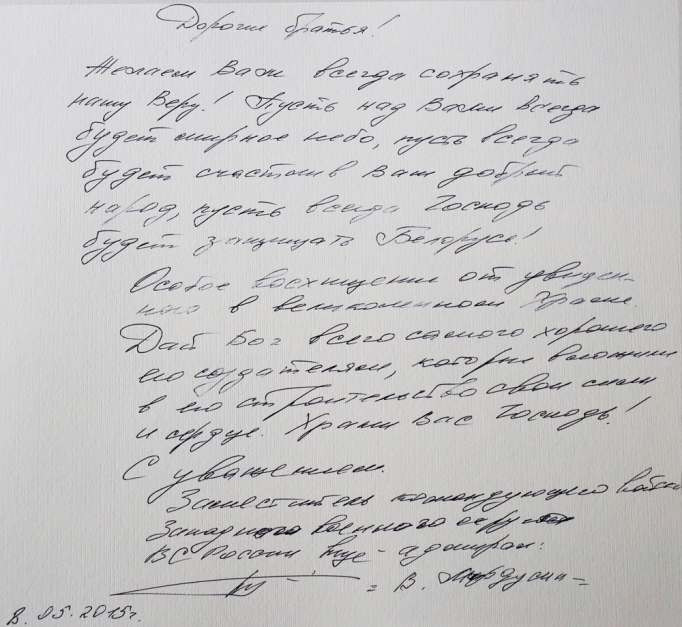 Дорогие братья!
Желаем Вам всегда сохранять
нашу Веру! Пусть над Вами всегда
будет мирное небо, пусть всегда
будет счастлив Ваш добрый
народ, пусть всегда Господь
будет защищать Беларусь!
Особое восхищение от увиден-
ного в великолепном Храме.
Дай Бог всего самого хорошего
его создателям, которые вложили
в его строительство свои силы
и сердце. Храни Вас Господь!
С уважением.
Заместитель командующего войсками
Западного военного округа
ВС России вице-адмирал:
= В. Мардусин =
8. 05. 2015г.